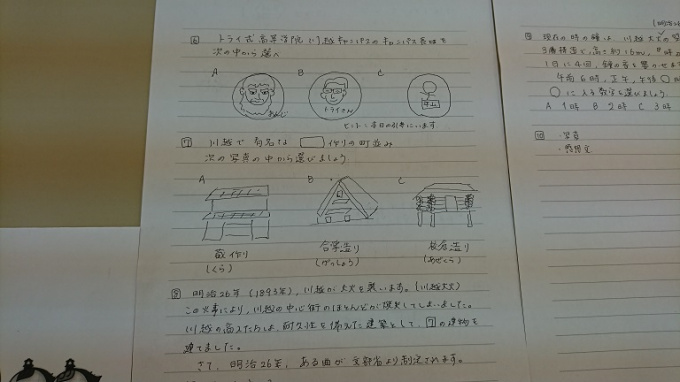 ⑥ トライ式高等学院 川越キャンパスのキャンパス長は
次の中から選べ
A B C
トライさん
ヒント:本日の引率にいます
⑦ 川越で有名な □ 作りの町並み
次の写真の中から選びましょう
A B C
蔵作り 合掌造り 校倉造り
(くら) (がっしょう) (あぜくら)
⑧ 明治26年(1893年)、川越が大火を襲います。(川越大火)
この火事により、川越の中心街のほとんどが焼失してしまいました。
川越の商人たちは、耐久性を備えた建築として、⑦の建物を
建てました。
さて、明治26年、ある曲が文部省より制定されます。
⑨ 現在の時の鐘は、川越大火の
3層構造で、高さ約16m、
1日に4回、鐘の音を響かせ
午前6時、正午、午後○
○に入る数字を選びましょう
A 1時 B 2時 C 3時
⑩ ・写真